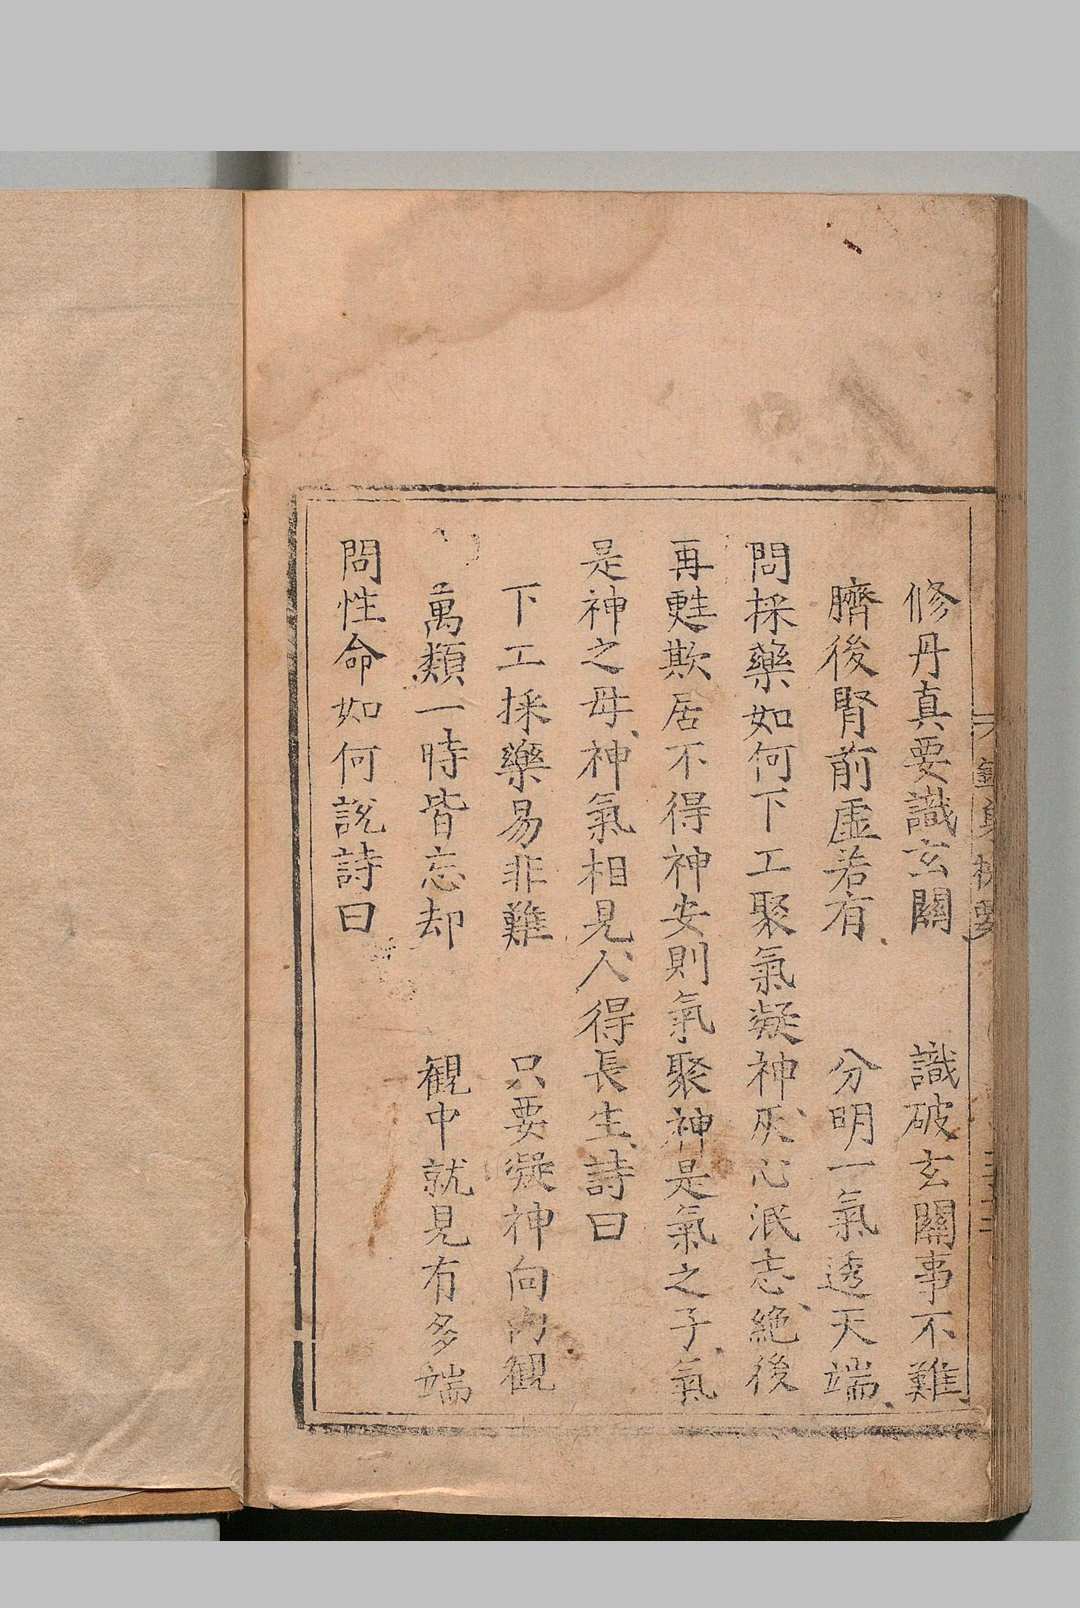 修丹真要識玄關　識破玄關事不難
臍後腎前虛若有　分明一氣透天端
問採藥如何下工聚氣凝神灰心泯志絶後
再甦欺居不得神安則氣聚神是氣之子氣
是神之母神氣相見人得長生詩曰
下工採藥易非難　只要凝神向內觀
萬類一時皆忘却　觀中就見有多端
問性命如何說詩曰